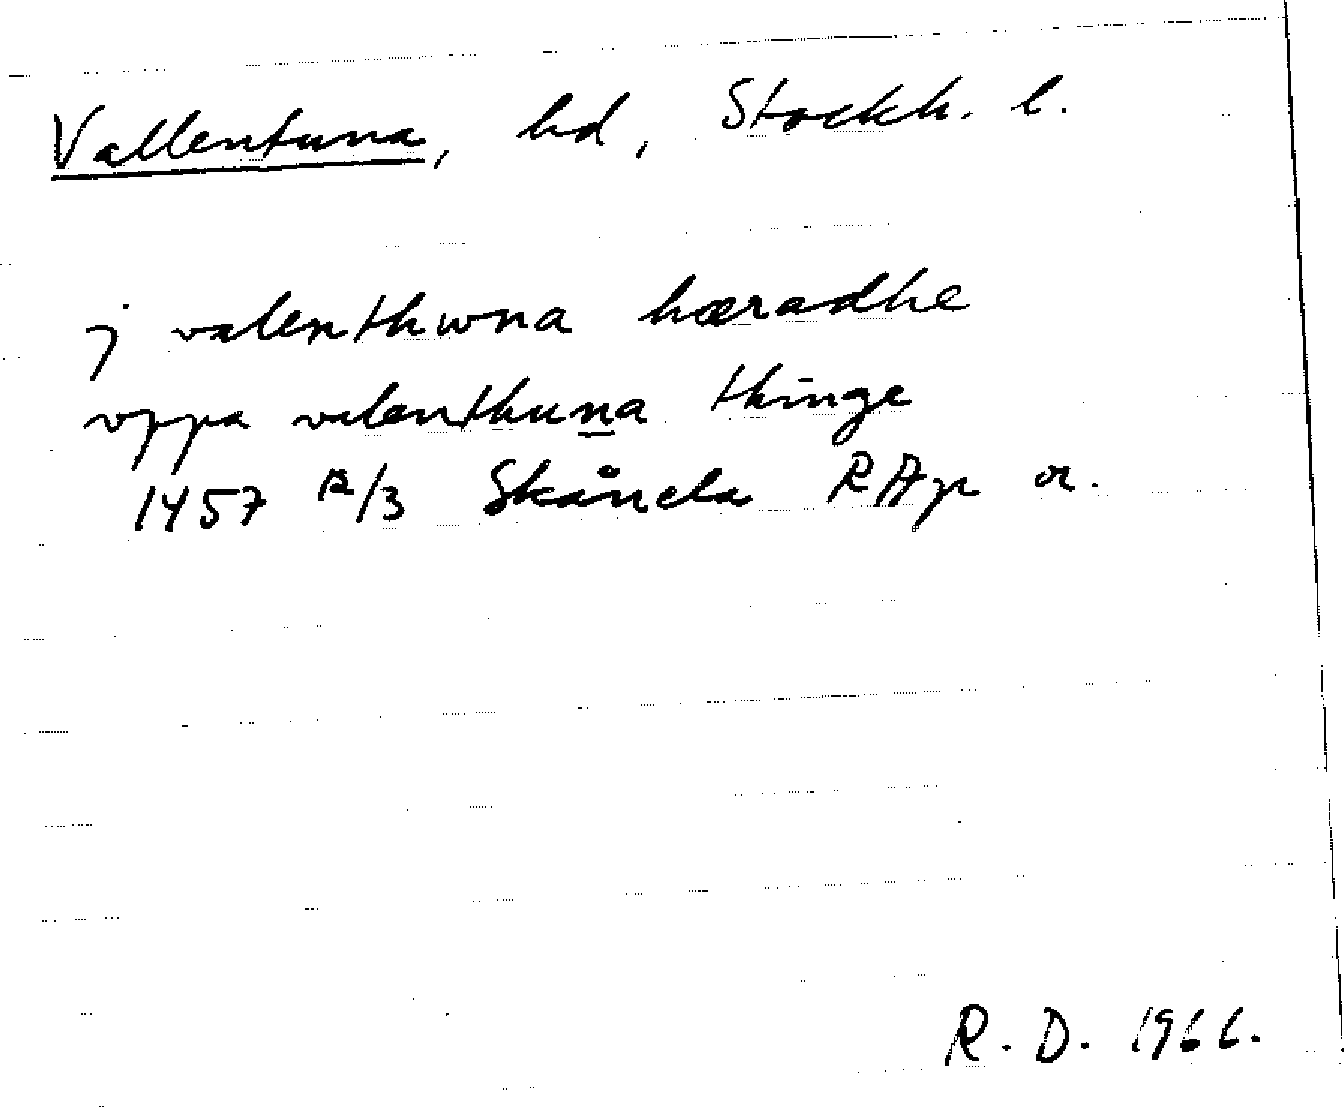 Vallentuna, hd, Stockh. l.
j valenthwna hæradhe
vppa valenthuna thinge
1457 12/3 Skånela RAp or.
R. D. 1966.